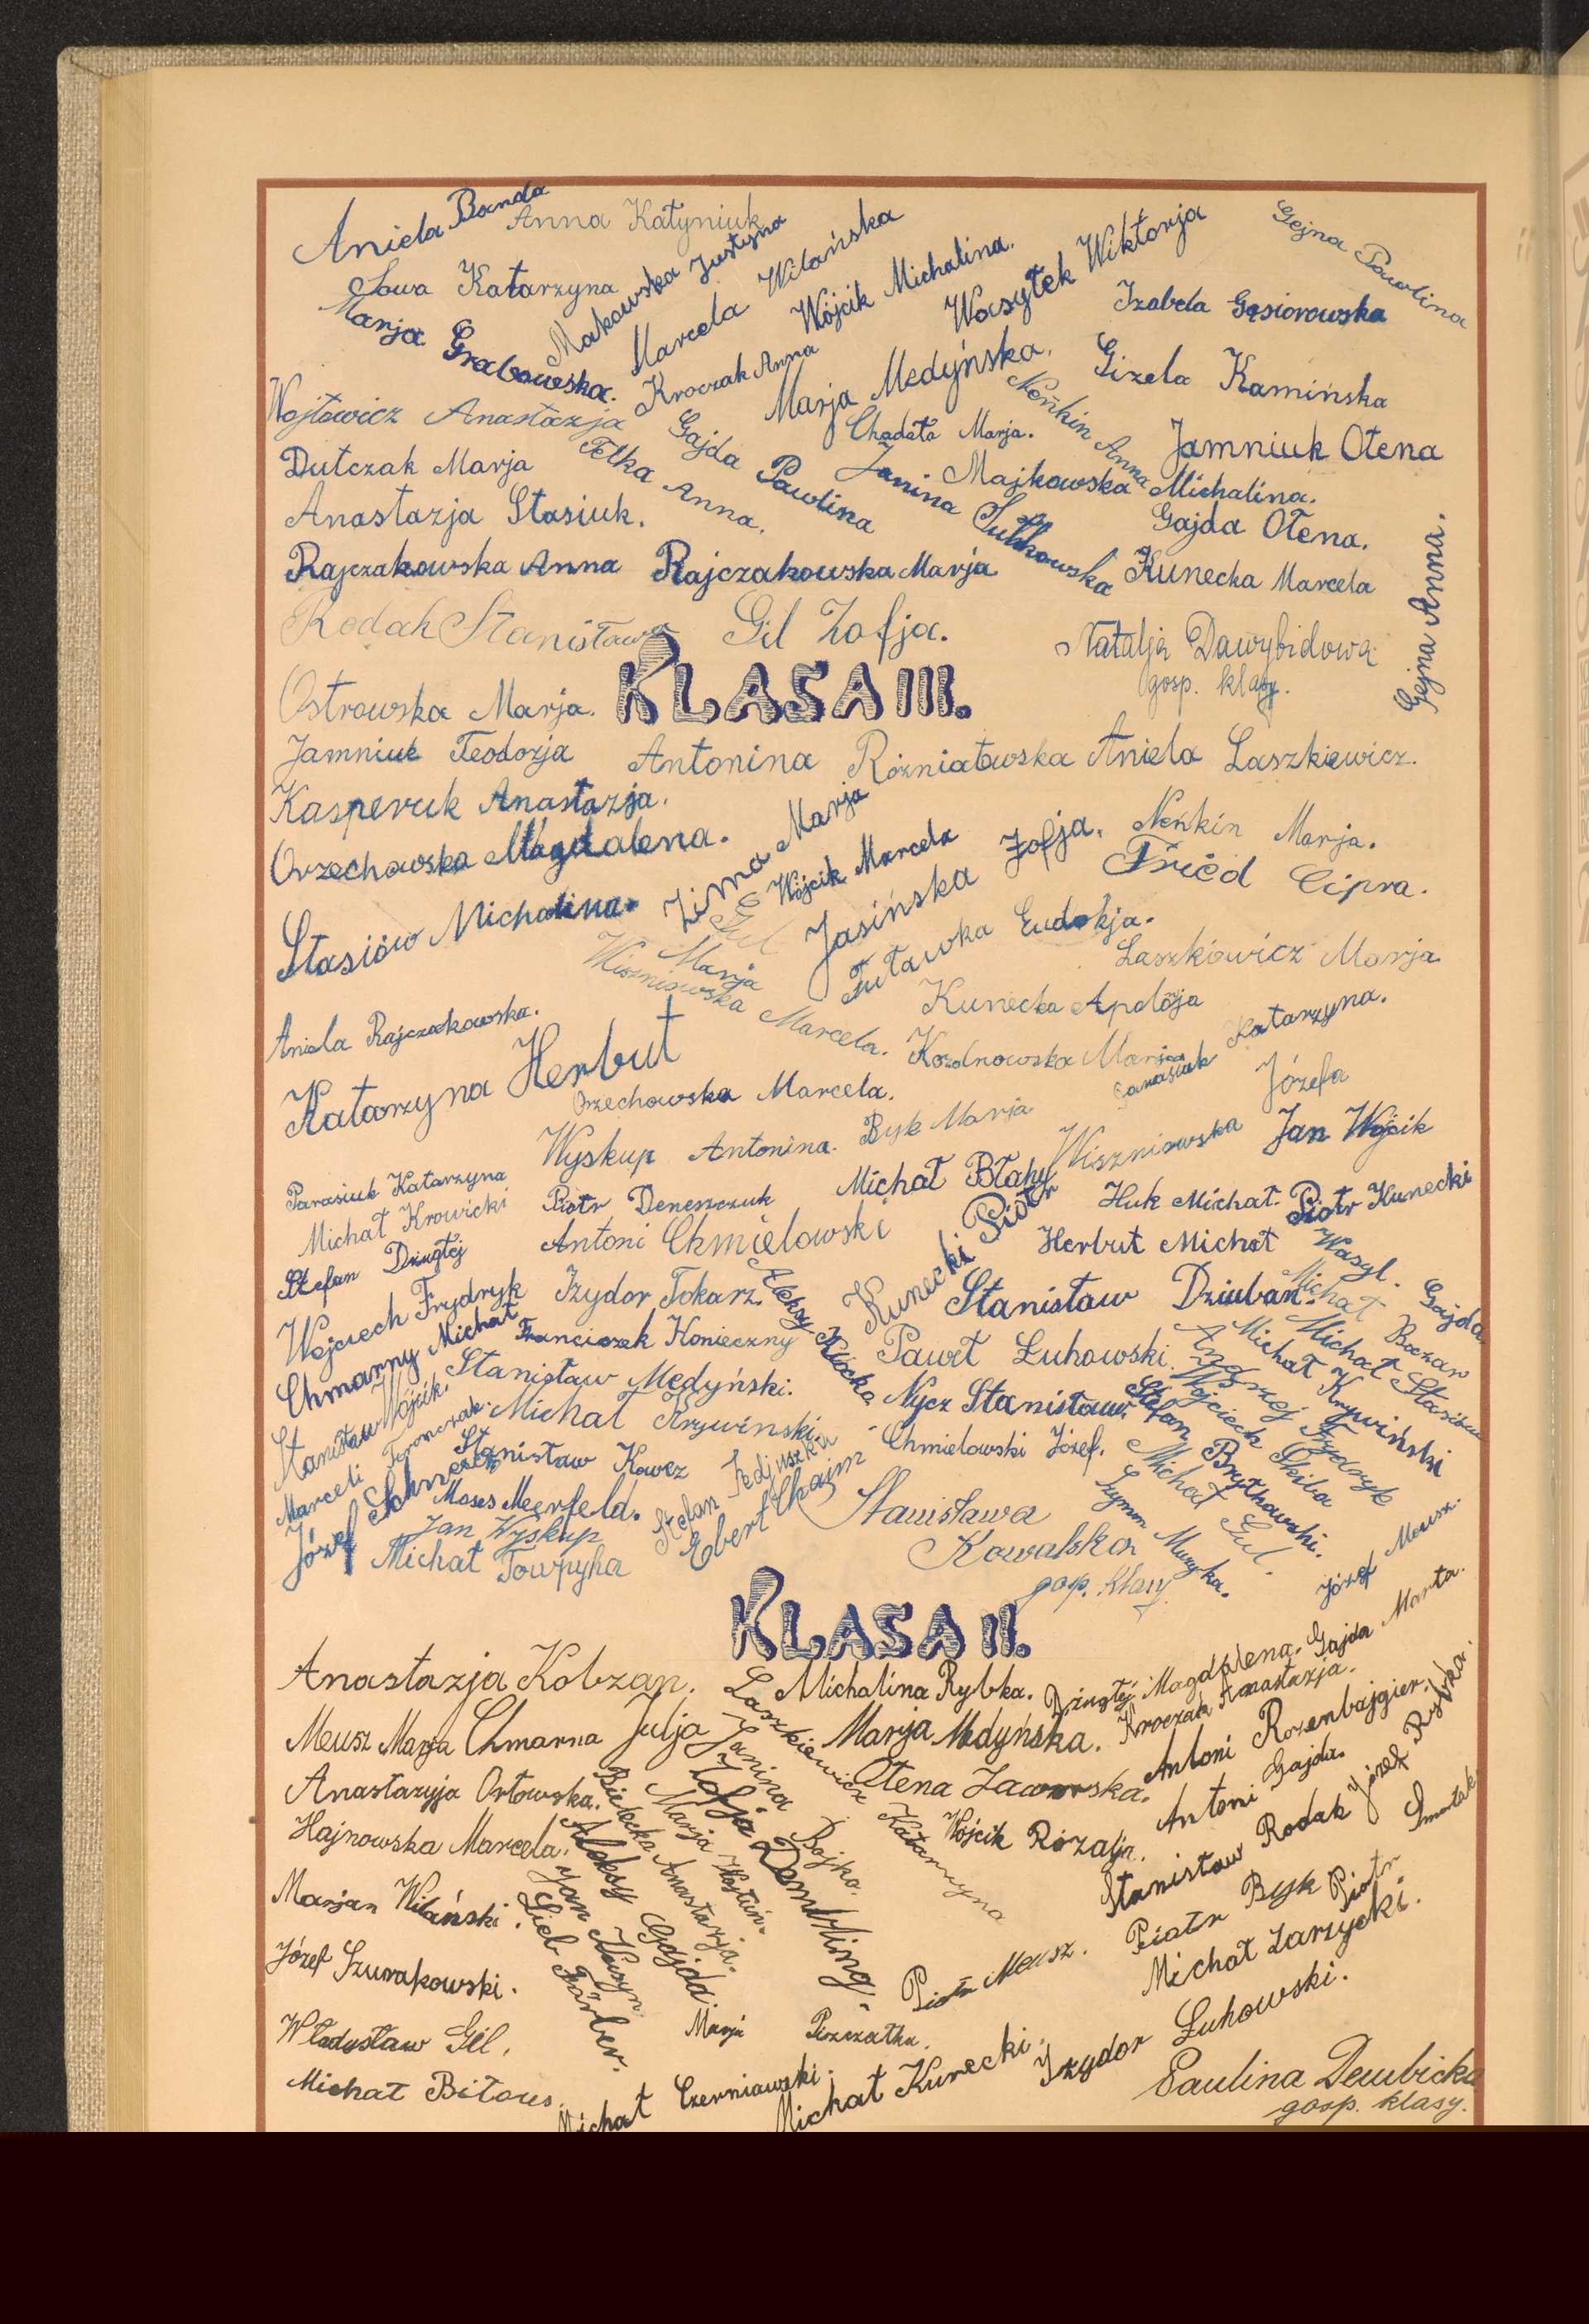 Aniela Banda
Anna Katyniuk
Gejna Paulina
Sowa Katarzyna
Makowska Justyna
Marcela Wilańska
Wójcik Michalina.
Wasylek Wiktorja
Izabela Gąsiorowska
Marja Grabowska.
Kroczak Anna
Marja Medyńska.
Gizela Kamińska
Wojtowicz Anastazja
Gajda Paulina
Chadała Marja.
Neńkin Anna
Jamniuk Ołena
Dutczak Marja
Fetka Anna.
Janina Sułkowska
Majkowska Michalina.
Anastazja Stasiuk.
Gajda Ołena.
Gejna Anna.
Rajczakowska Anna
Rajczakowska Marja
Kunecka Marcela
Rodak Stanisława
Gil Zofja.
Natalja Dawybidowa
gosp. klasy.
KLASA III.
Ostrowska Marja.
Jamniuk Teodozja
Antonina Rożniatowska
Aniela Laszkiewicz.
Kasperuk Anastazja.
Orzechowska Magdalena.
Zima Marja
Wójcik Marcela
Jasińska Zofja.
Neńkin Marja.
Fried Cipra.
Stasiów Michalina.
Gul Marja
Tutawka Eudokja.
Laszkiowicz Marja
Wiszniowska Marcela.
Kunecka Apolōja
Aniela Rajczakowska.
Katarzyna Herbut
Orzechowska Marcela.
Kozdnowska Marja
Banasiuk Katarzyna.
Wyskup Antonina.
Byk Marja
Wiszniowska Józefa
Jan Wójcik
Parasiuk Katarzyna
Michał Krowicki
Piotr Deneszczuk
Michał Błahy
Huk Michał.
Piotr Kunecki
Stefan Dziugłej
Antoni Chmielowski
Kunecki Piotr
Herbut Michał
Wasyl. Gajda
Wojciech Frydryk
Izydor Tokarz.
Aleksy Kłocko
Stanisław Dziuban.
Michał Boczar
Chmarny Michał
Franciszek Konieczny
Paweł Łuhowski.
Michał Stasiów
Stanisław Wójcik.
Stanisław Medyński.
Nycz Stanisław.
Michał Krywiński
Andrzej Frydryk
Marceli Feronczak.
Michał Krywiński.
Wojciech Skiba
Stefan Brytkowski.
Józef Schneider
Stanisław Kawcz
Stefan Fedjuszka
Chmielowski Józef.
Michał Gul.
Moses Meerfeld.
Ebert Chaim
Szymon Muzyka.
Jan Wyskup
Michał Towpyha
Stanisława
Kowalska
gosp. klasy.
Józef Meusz.
KLASA II.
Anastazja Kobzan.
Laszkiewicz Katarzyna
Michalina Rybka.
Dziugłej Magdalena.
Gajda Marta.
Meusz Marja
Chmarna Julja
Janina Bojko.
Marja Medyńska.
Kroczak Anastazja.
Anastazyja Orłowska.
Bielecka Anastazja.
Marja Wojtuń.
Zofja Dembling.
Ołena Jaworska.
Antoni Rozenbajgier.
Hajnowska Marcela.
Aleksy Gajda.
Wójcik Rozalja.
Antoni Gajda.
Józef Rybka.
Marjan Wilański.
Jan Kuszyn
Lieb Färber.
Stanisław Rodak
Piotr Smontek
Józef Szurakowski.
Piotr Meusz.
Piotr Byk
Michał Zarzycki.
Władysław Gil.
Marja Piszczatka.
Michał Bilous.
Michał Czerniawski.
Michał Kunecki.
Izydor Łuhowski.
Paulina Dembicka
gosp. klasy.